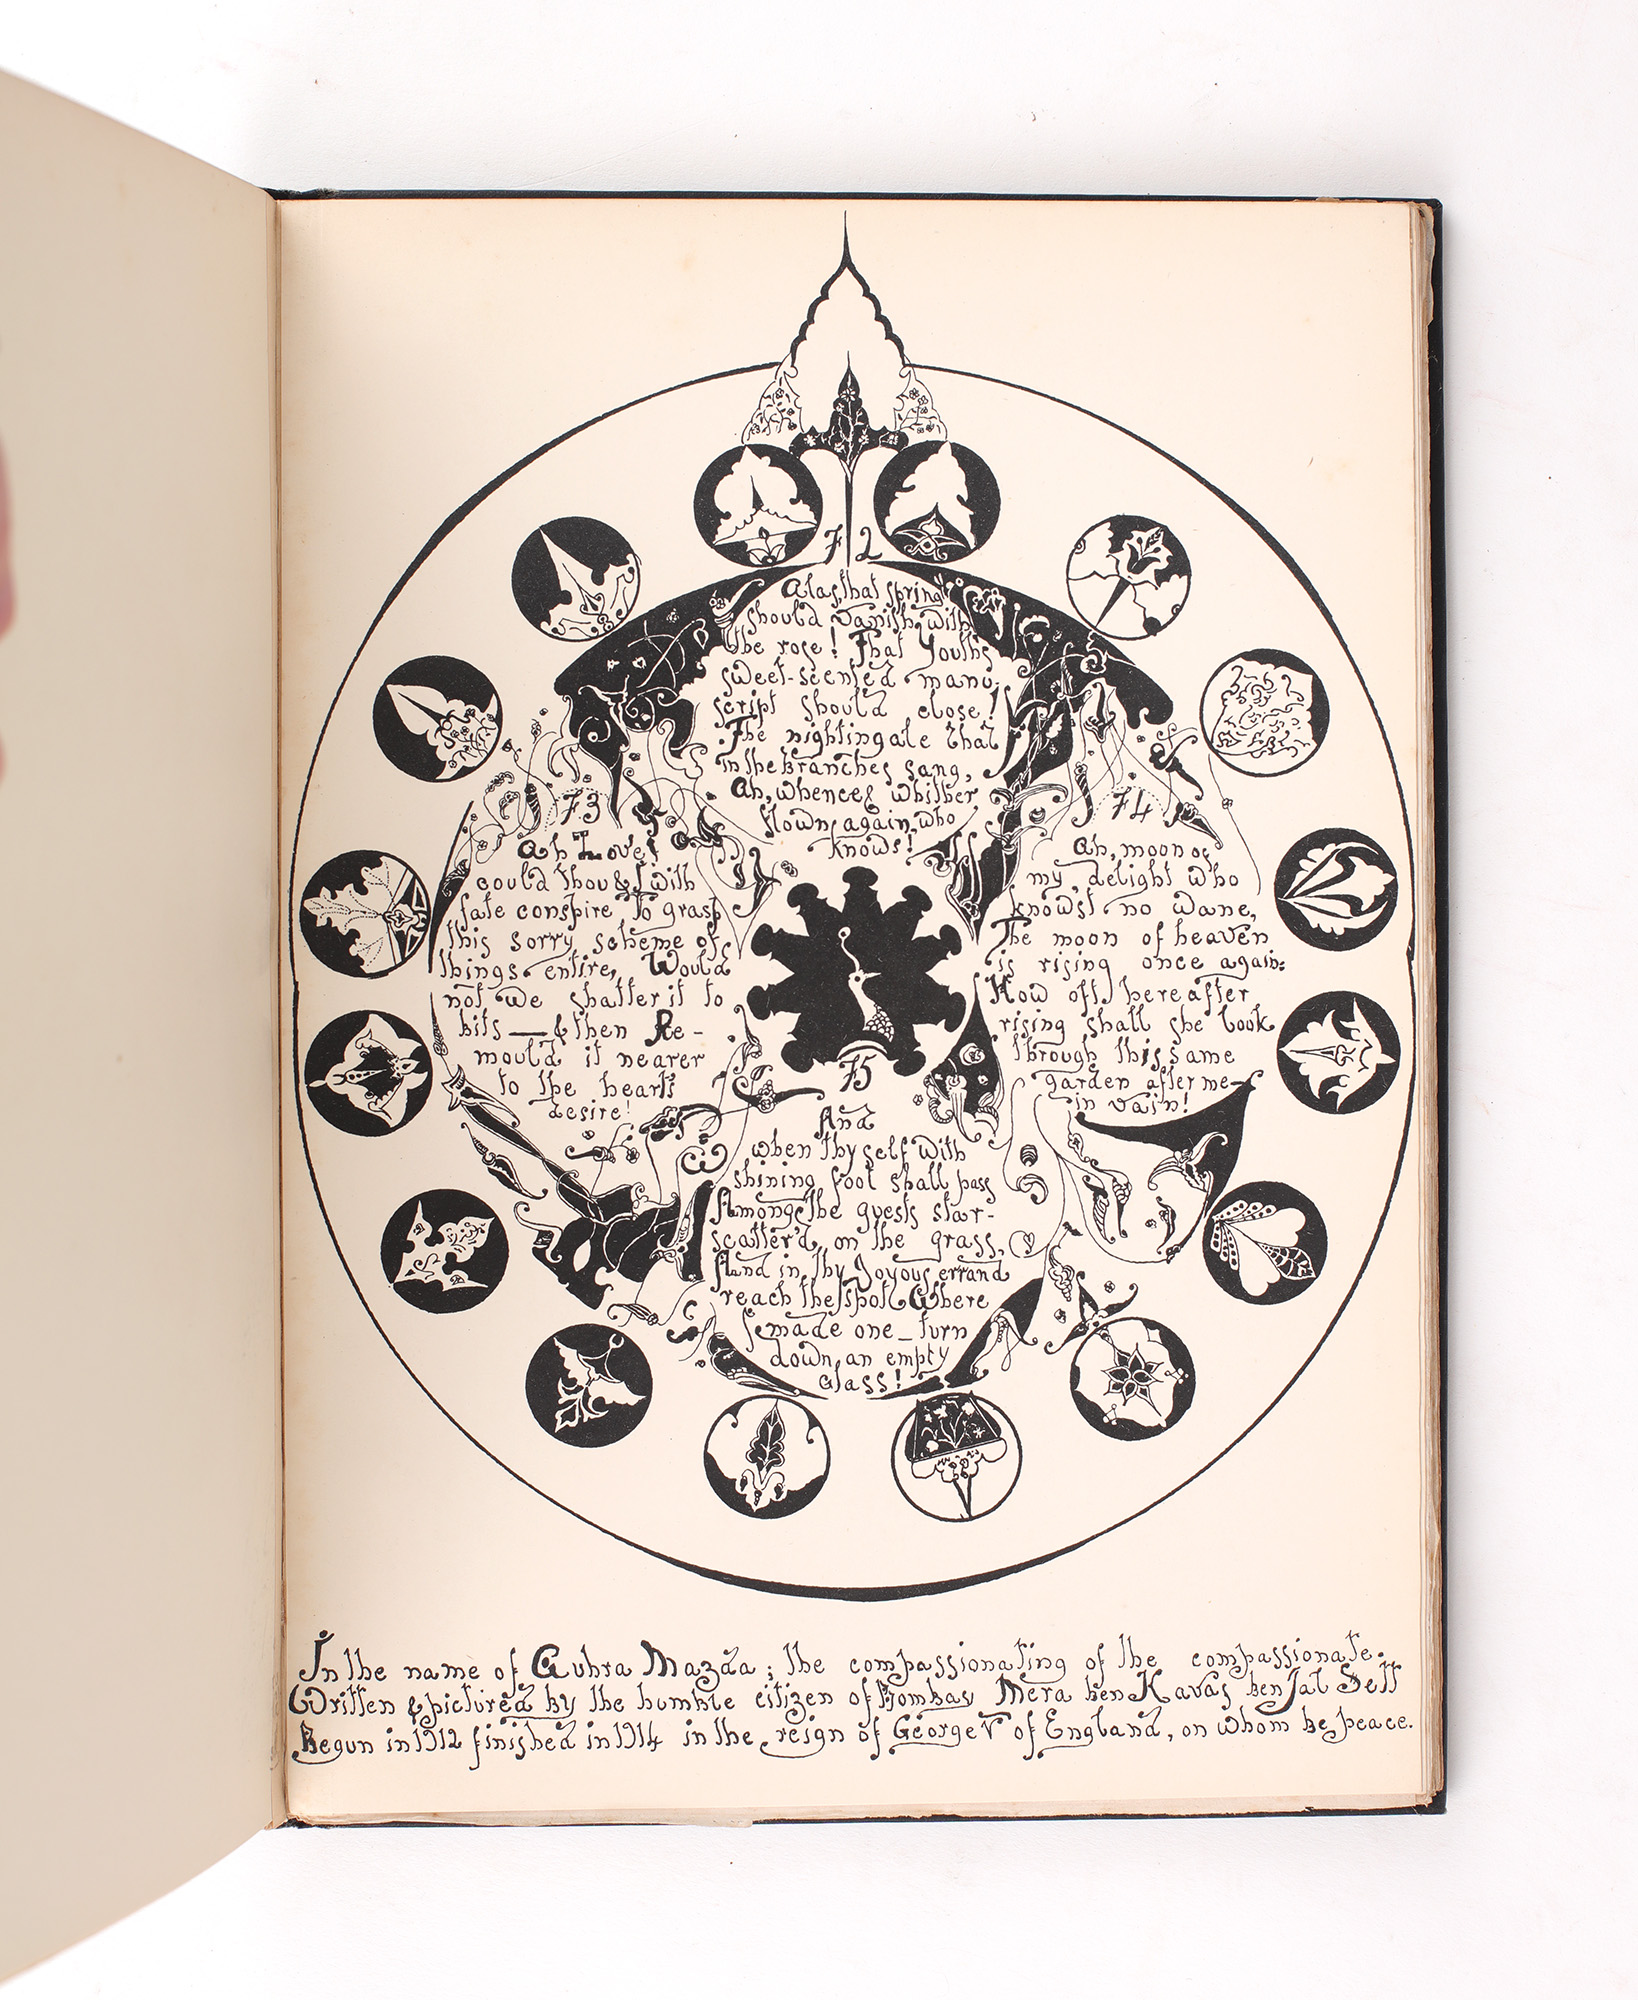 72
Alas, that spring
should vanish with
the rose! That Youth's
sweet-scented manu-
script should close!
The nightingale that
in the branches sang,
Ah, whence & whither
flown, again, who
knows!
73
Ah Love!
could thou & I with
fate conspire To grasp
this sorry scheme of
things entire, Would
not we shatter it to
bits — & then Re-
mould it nearer
to the heart's
desire!
74
Ah, moon of
my delight who
knowst no wane,
The moon of heaven
is rising once again:
How oft hereafter
rising shall she look
through this same
garden after me—
in vain!
75
And
when thyself with
shining foot shall pass
Among the guests star-
scatter'd on the grass,
And in thy Joyous errand
reach the spot Where
I made one — turn
down an empty
Glass!
In the name of Auhra Mazda; the compassionating of the compassionate.
Written & pictured by the humble citizen of Bombay Mera ben Kavas ben Jal Sett
Begun in 1912 finished in 1914 in the reign of George V of England, on whom be peace.